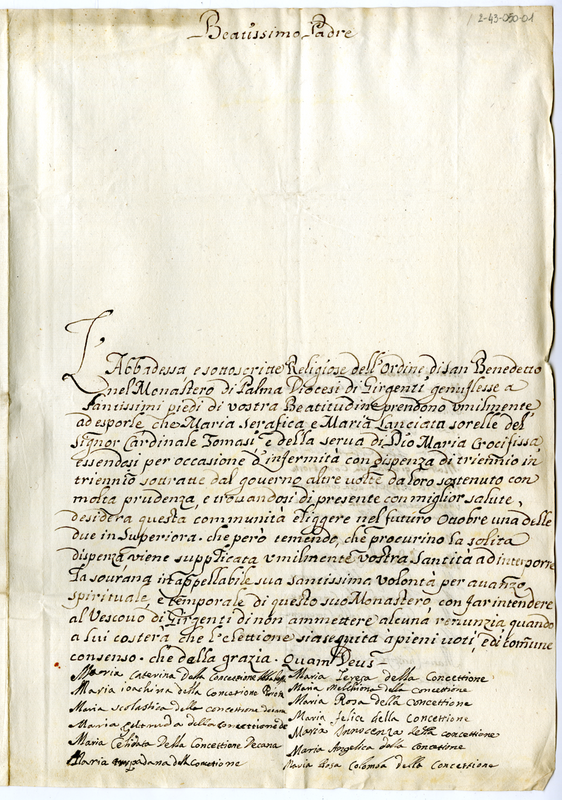 2-43-050-01
Beatissimo Padre
L'Abbadessa e sottoscritte Religiose dell'Ordine di San Benedetto
nel Monastero di Palma Diocesi di Girgenti, genuflesse a
Santissimi piedi di vostra Beatitudine prendono umilmente
ad esporle, che Maria Serafica e Maria Lanciata sorelle del
Signor Cardinale Tomasi e della serua di Dio Maria Crocifissa,
essendosi per occasione d'infermità con dispenza di triennio in
triennio sotratte dal governo altre volte da loro sostenuto con
molta prudenza, e trovandosi di presente con miglior salute,
desidera questa communità eliggere nel futuro Ottobre una delle
due in Superiora. che però temendo, che procurino la solita
dispenza viene supplicata umilmente vostra Santità ad interporre
la sourana inappellabile sua santissima volontà per auanzo
spirituale, e temporale di questo suo Monastero, con far intendere
al Vescouo di Girgenti di non ammettere alcuna renunzia quando
a lui costerà che l'elettione sia seguita a pieni voti, e di comune
consenso. che della grazia. Quam Deus
Maria Caterina della Concettione Abbadessa
Maria ioachina della Concetione Priora
Maria scolastica della concettione decana
Maria geltruda della Concettione de
Maria Celidata della Concettione Decana
Maria della Concetione
Maria Teresa della Concettione
Maria Melchiora della concettione
Maria Rosa della Concettione
Maria felice della Concettione
Maria Innocenza della concettione
Maria Angelica della Concetione
Maria Rosa Colomba della Concettione